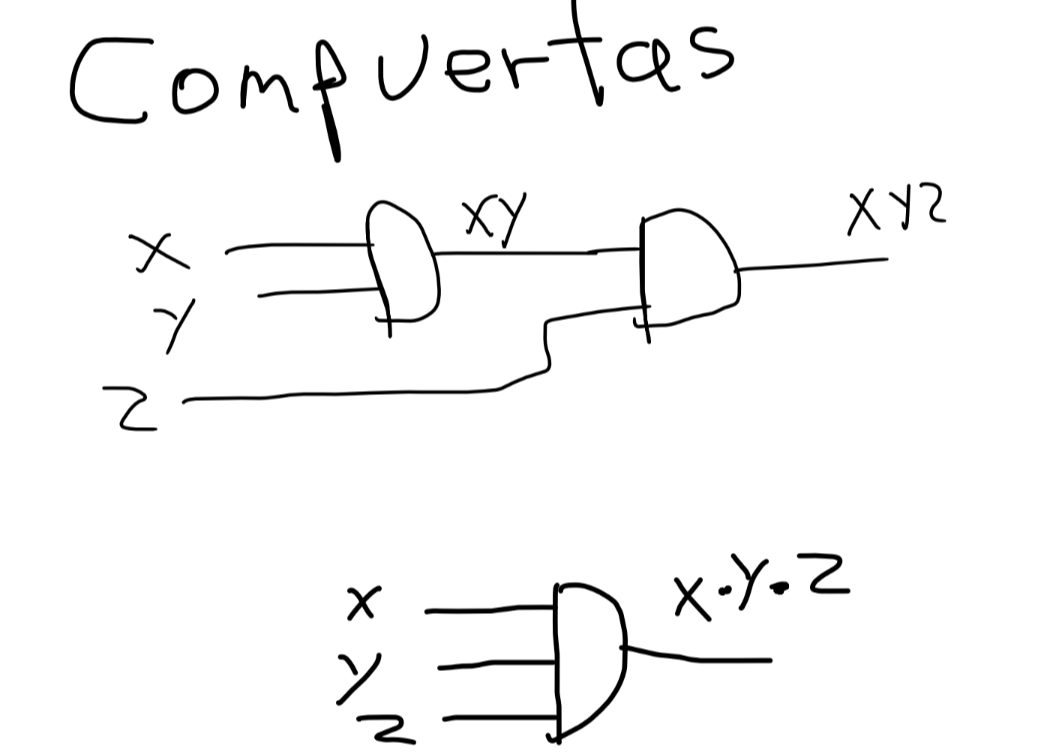 Compuertas
X
Y
Z
XY
XYZ
X
Y
Z
X·Y·Z